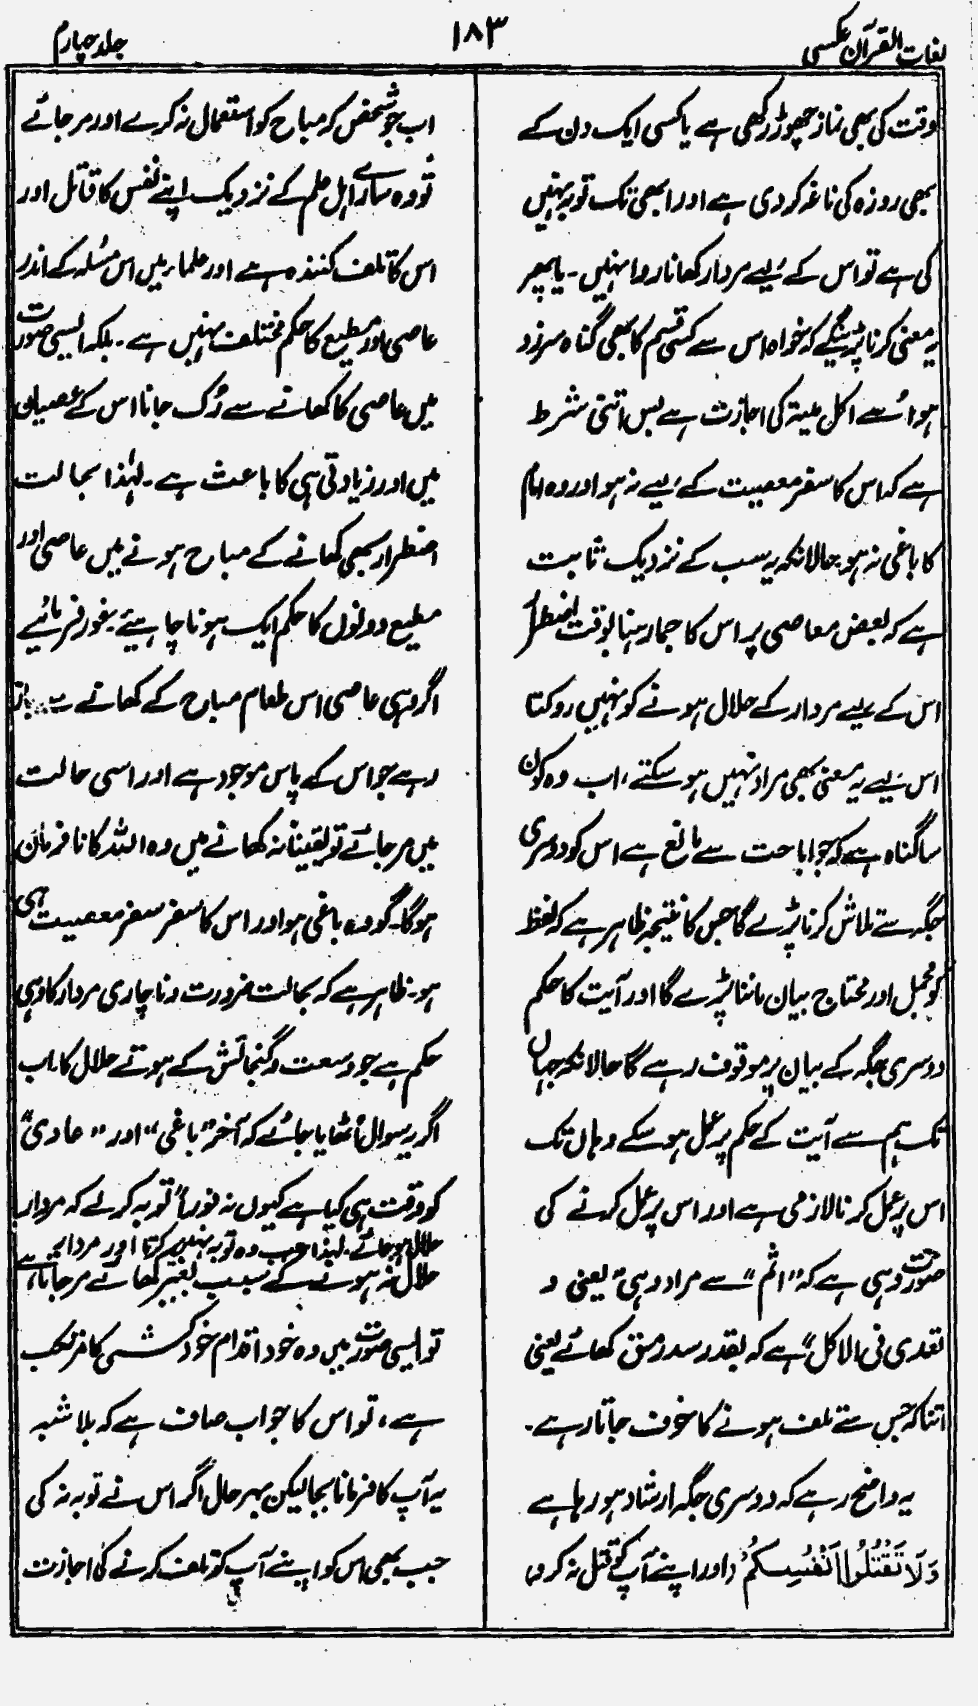 لغات القرآن عکسی
۱۸۳
جلد چہارم
وقت کی بھی نماز چھوڑ رکھی ہے یا کسی ایک دن کے
بھی روزہ کی ناغہ کردی ہے اور ابھی تک توبہ نہیں
کی ہے تو اس کے لیے مردار کھانا روا نہیں ۔ یا پھر
یہ معنی کرنا پڑینگے کہ خواہ اس سے کسی قسم کا بھی گناہ سرزد
ہو اُسے اکل میتۃ کی اجازت ہے بس اتنی شرط
ہے کہ اس کا سفر معصیت کے لیے نہ ہو اور وہ امام
کا باغی نہ ہو حالانکہ یہ سب کے نزدیک ثابت
ہے کہ بعض معاصی پر اس کا جما رہنا بوقت اضطرار
اس کے لیے مردار کے حلال ہونے کو نہیں روکتا
اس لیے یہ معنی بھی مراد نہیں ہو سکتے ، اب وہ کون
سا گناہ ہے کہ جو اباحت سے مانع ہے اس کو دوسری
جگہ سے تلاش کرنا پڑے گا جس کا نتیجہ ظاہر ہے کہ لفظ
کو مجمل اور محتاج بیان ماننا پڑے گا اور آیت کا حکم
دوسری جگہ کے بیان پر موقوف رہے گا حالانکہ جہاں
تک ہم سے آیت کے حکم پر عمل ہو سکے وہاں تک
اس پر عمل کرنا لازمی ہے اور اس پر عمل کرنے کی
صورت وہی ہے کہ "اثم" سے مراد وہی" یعنی و
تعدی فی الاکل" ہے کہ بقدر سد رمق کھائے یعنی
اتنا کہ جس سے تلف ہونے کا خوف جاتا رہے ۔
یہ واضح رہے کہ دوسری جگہ ارشاد ہو رہا ہے
وَلَا تَقْتُلُوا اَنْفُسِكُمْ (اور اپنے آپ کو قتل نہ کرو)
اب جو شخص کہ مباح کو استعمال نہ کرے اور مر جائے
تو وہ سارے اہل علم کے نزدیک اپنے نفس کا قاتل اور
اس کا تلف کنندہ ہے اور علماء میں اس مسئلہ کے اندر
عاصی اور مطیع کا حکم مختلف نہیں ہے ۔ بلکہ ایسی صورت
میں عاصی کا کھانے سے رُک جانا اس کے عصیان
میں اور زیادتی ہی کا باعث ہے ۔ لہٰذا بحالت
اضطرار بھی کھانے کے مباح ہونے میں عاصی اور
مطیع دونوں کا حکم ایک ہونا چاہیئے ۔ غور فرمائیے
اگر وہی عاصی اس طعام مباح کے کھانے سے باز
رہے جو اس کے پاس موجود ہے اور اسی حالت
میں مر جائے تو یقیناً نہ کھانے میں وہ اللہ کا نافرمان
ہوگا ۔ گو وہ باغی ہو اور اس کا سفر سفر معصیت ہی
ہو ۔ ظاہر ہے کہ بحالت ضرورت و ناچاری مردار کا وہی
حکم ہے جو وسعت و گنجائش کے ہوتے حلال کا ۔ اب
اگر یہ سوال اُٹھایا جائے کہ آخر "باغی" اور "عادی"
کو وقت ہی کیا ہے کیوں نہ فوراً توبہ کر لے کہ مردار
حلال ہو جائے ۔ لہذا جب وہ توبہ نہیں کرتا اور مردار کے
حلال نہ ہونے کے سبب بغیر کھائے مر جاتا ہے
تو ایسی صورت میں وہ خود اقدام خود کشی کا مرتکب
ہے ، تو اس کا جواب صاف ہے کہ بلاشبہ
یہ آپ کا فرمانا بجا لیکن بہر حال اگر اس نے توبہ نہ کی
جب بھی اس کو اپنے آپ کو تلف کرنے کی اجازت